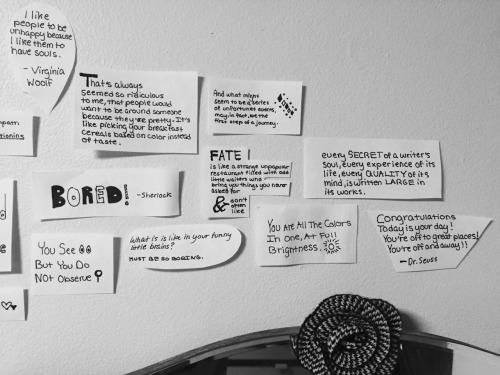 I like
people to be
unhappy because
I like them to
have souls.
- Virginia
Woolf
That's always
seemed so ridiculous
to me, that people would
want to be around someone
because they're pretty. It's
like picking your breakfast
cereals based on color instead
of taste.
And what might
seem to be a series
of unfortunate events,
may, in fact, be the
first steps of a journey.
FATE!
is like a strange unpopular
restaurant filled with odd
little waiters who
bring you things you never
asked for
& don't
often
like
every SECRET of a writer's
soul, every experience of his
life, every QUALITY of his
mind, is written LARGE in
its works.
BORED!
-Sherlock
You See
But You Do
Not Observe
What is is like in your funny
little brains?
MUST BE SO BORING.
You Are All The Colors
In One, At Full
Brightness.
Congratulations
Today is your day!
You're off to great places!
You're off and away!!
- Dr. Seuss